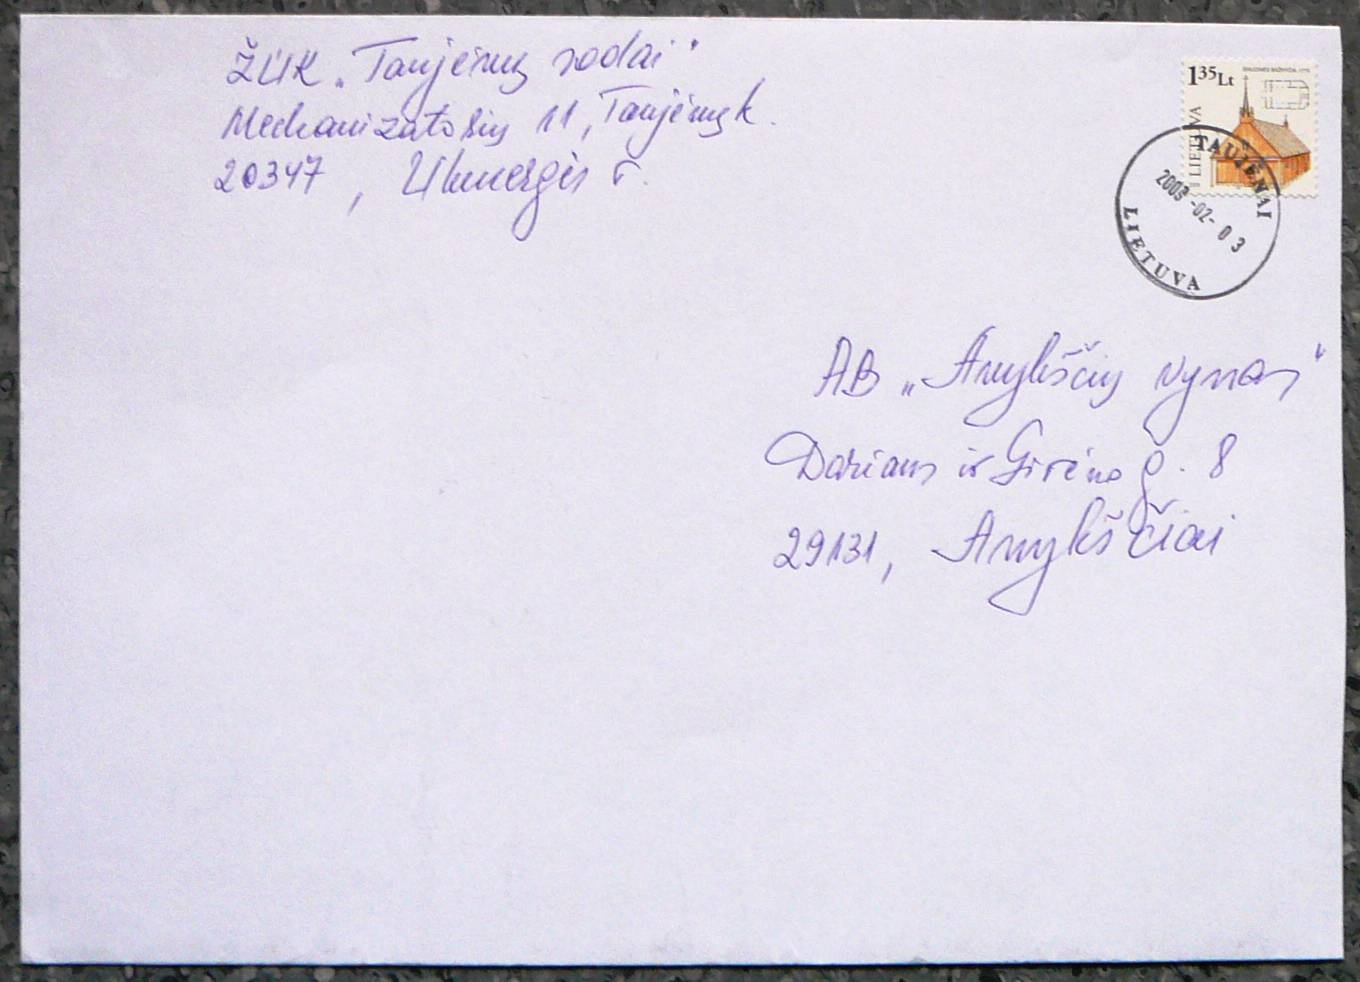 ŽŪK „Taujėnų sodai“
Mechanizatorių 11, Taujėnų k.
20347, Ukmergės r.
1 35 Lt
LIETUVA
TAUJĖNAI
2009-02-03
LIETUVA
AB „Anykščių vynas“
Dariaus ir Girėno g. 8
29131, Anykščiai